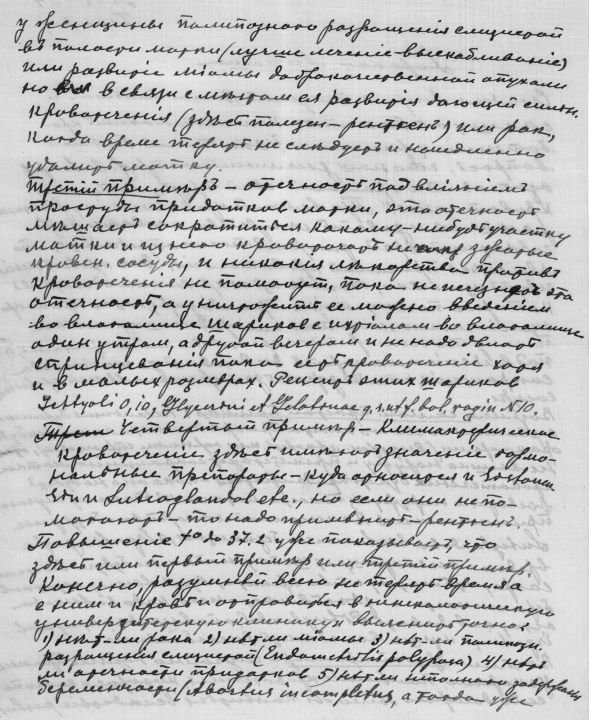 у женщины полипознаго разращенія слизистой
въ полости матки (лучше леченіе-выскабливаніе)
или развитіе міомы доброкачественной опухоли
но въ связи с мѣстом ея развитія дающей сильн.
кровотеченія (здѣсь полезен - рентген) или рак,
когда время терять не слѣдует и немедленно
удалить матку.
Третій примѣръ - отечность под вліяніем
простуды придатков матки, эта отечность
мѣшает сократиться какому-нибудь участку
матки и из него кровоточат не зажатые
кровен. сосуды, и никакія лѣкарства против
кровотеченія не помогут, пока не исчезнет эта
отечность, а уничтожить ее можно введеніем
во влагалище шариков с ихтіолом во влагалище
один утром, а другой вечером и не надо дѣлать
спринцеваній пока есть кровотеченіе хотя
и в малых размѣрах. Рецепт этих шариков
Ichtyoli 0,10, Glycerini et Gelatinae q.s. ut f. bol. vagin N 10.
Трет Четвертый примѣр - Климактерическое
кровотеченіе здѣсь имѣют значеніе гормо-
нальные препараты - куда относится и
и Luteoglandol etc., но если они не по-
могают - то надо примѣнить - рентген.
Повышеніе t° до 37.2 уже показывает, что
здѣсь или первый примѣр или третій примѣр.
Конечно, разумнѣй всего не терять время а
с ним и кровь и отправиться в гинекологическую
университетскую клинику и выяснить точно:
1) нѣт-ли рака 2) нѣт ли міомы 3) нѣт-ли полипозн.
разращенія слизистой (Endometritis polyposa) 4) нѣт
ли отечности придатков 5) нѣт ли неполного задержания
беременности (Abortus incompletus, а тогда уже